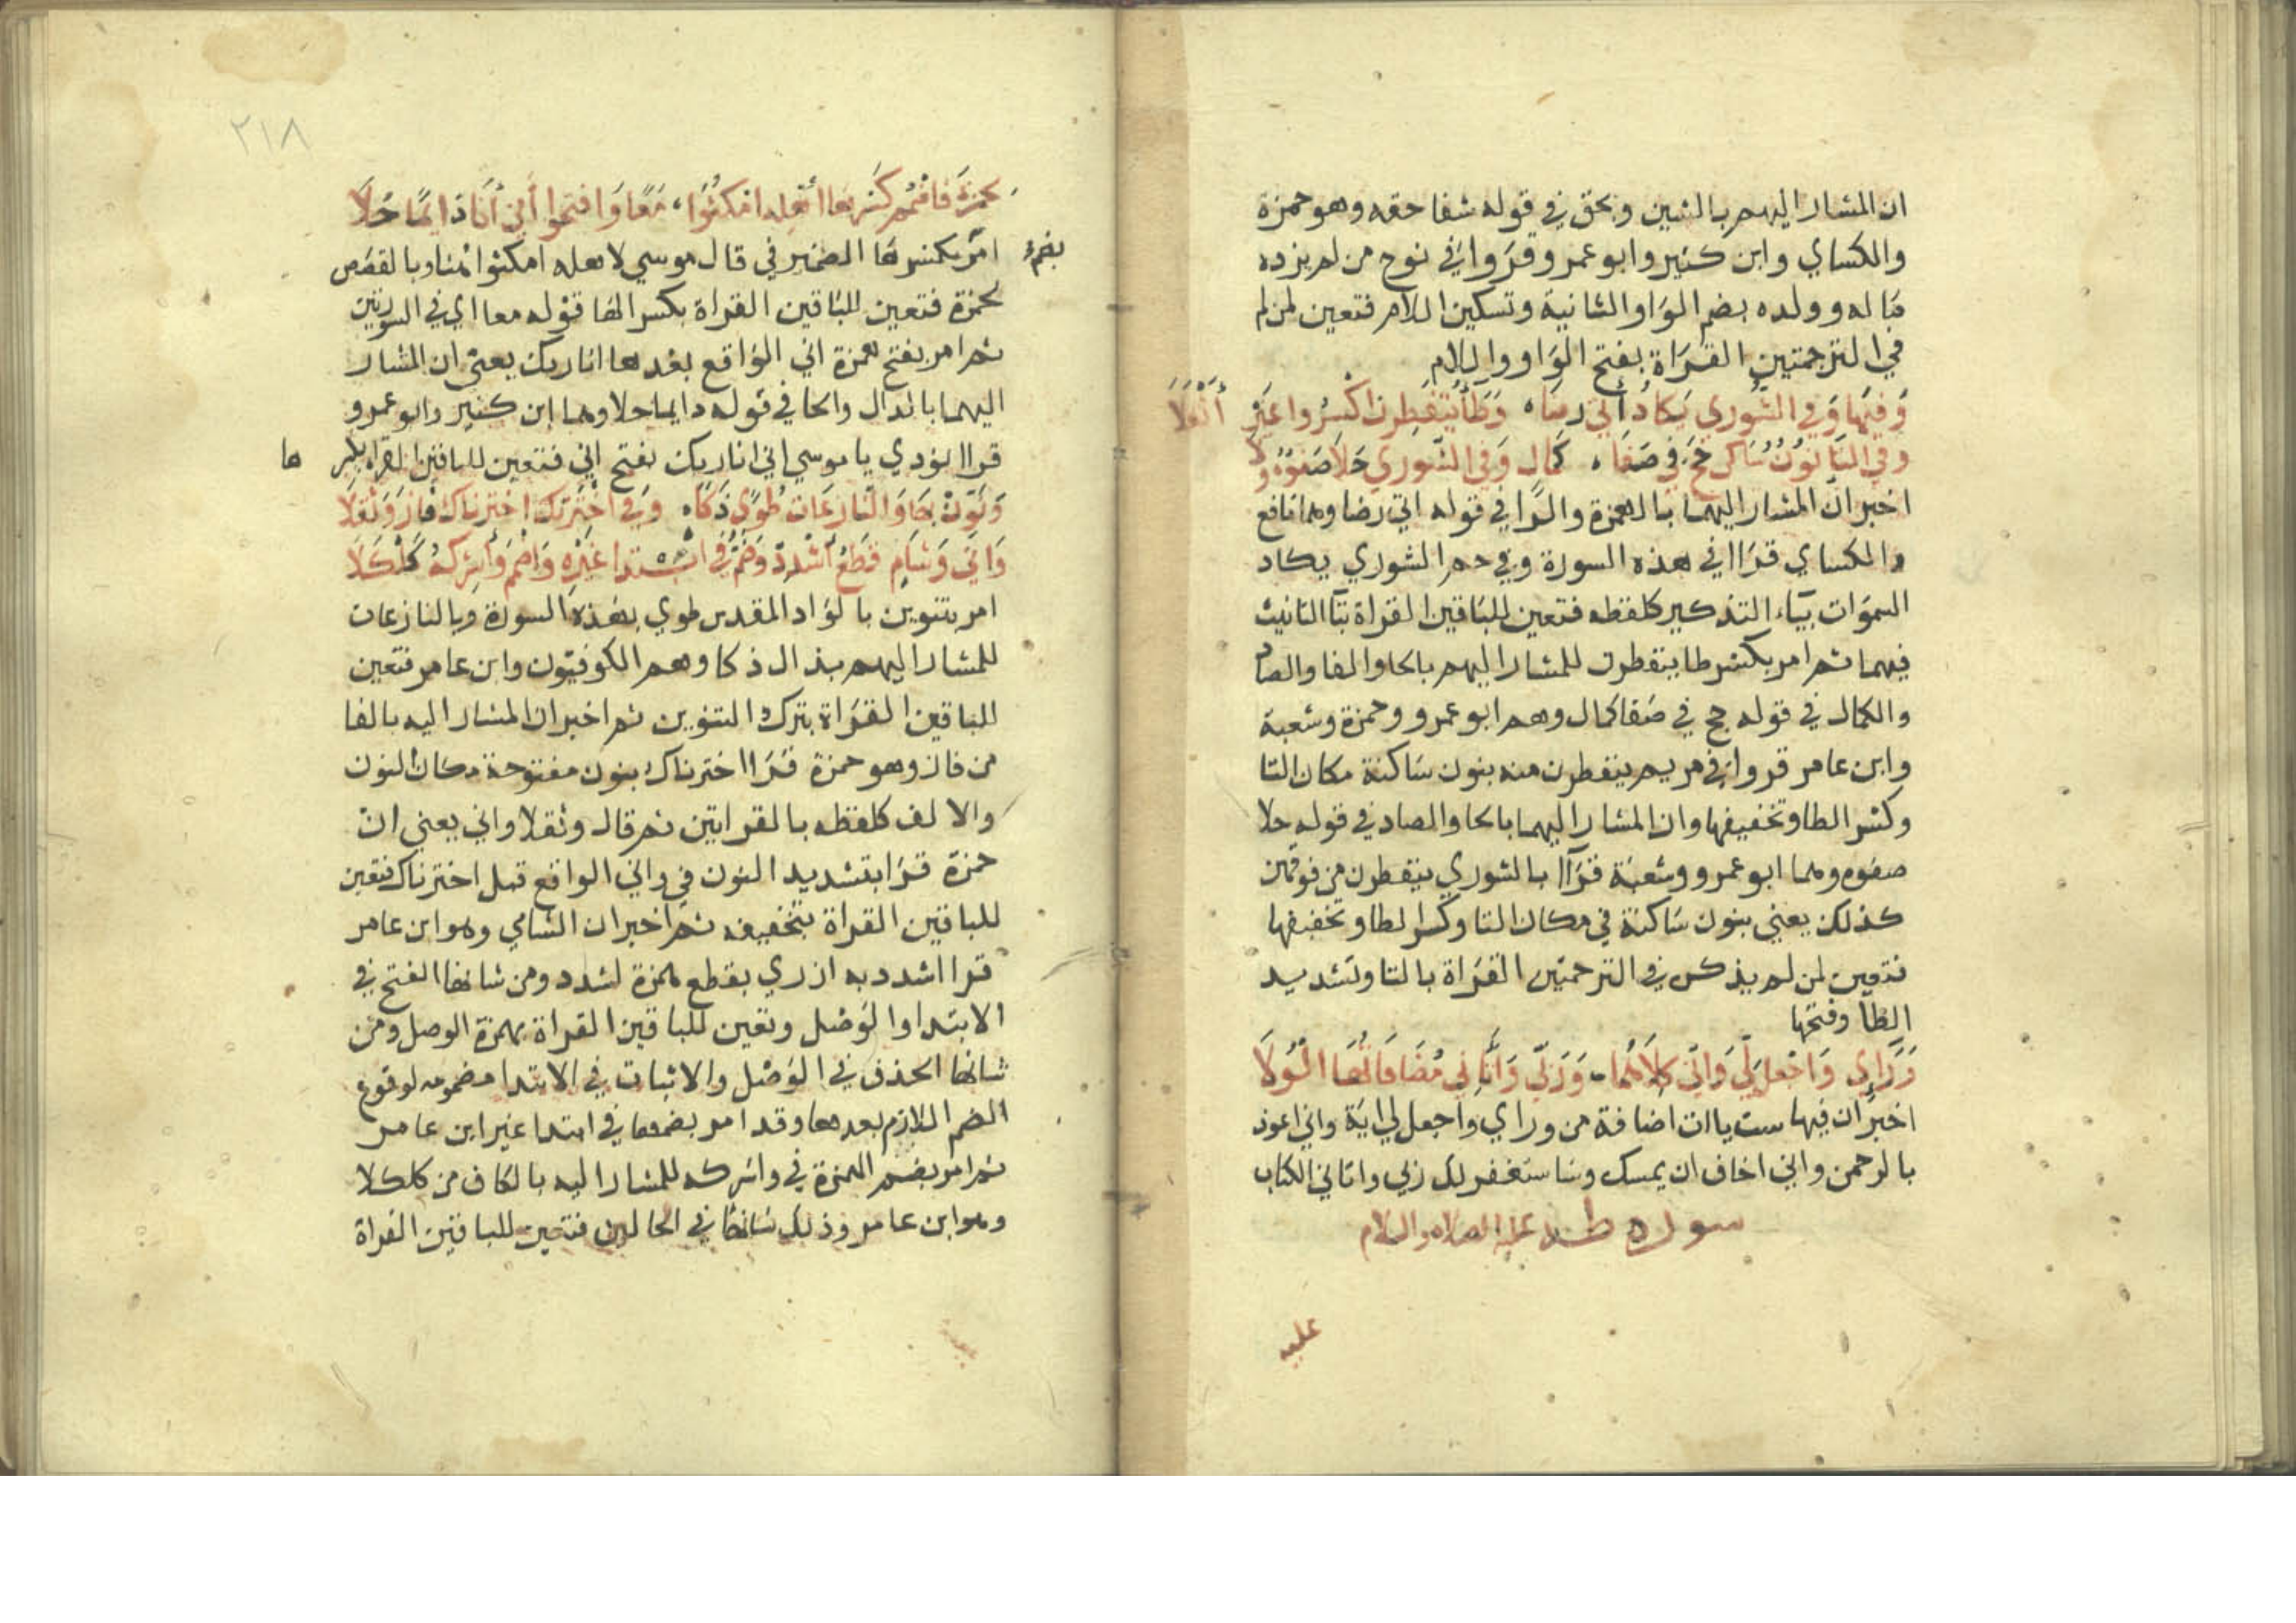 ان المشار اليهم بالشين وبحق في قوله شفا حقه وهو حمزة
والكساي وابن كثير وابو عمرو قروا في نوح من لم يزده
ماله وولده بضم الواو الثانية وتسكين اللام فتعين لمن لم
في الترجمتين القراة بفتح الواو واللام
وَفيها وَفي الشورى يَكادُ أتى رضا ، وَطَا يَتَفَطَّرن اكسروا غَيْرَ أثقلا
وفي التا نون ساكن حج في صفا ، كمال وَفي الشورى حلا صفوه ولا
اخبر ان المشار اليهما بالهمزة والرا في قوله اتى رضا وهما نافع
والكساي قرا في هذه السورة وفي حم الشورى يكاد
السموات بياء التذكير كلفظه فتعين للباقين القراة بتا التانيث
فيهما ثم امر بكسر طا يتفطرن للمشار اليهم بالحا والفا والصاد
والكمال في قوله حج في صفا كمال وهم ابو عمرو وحمزة وشعبة
وابن عامر قروا في مريم ينفطرن منه بنون ساكنة مكان التا
وكسر الطا وتخفيفها وان المشار اليهما بالحا والصاد في قوله حلا
صفوه وهما ابو عمرو وشعبة قرآ بالشورى ينفطرن من فوقهن
كذلك يعني بنون ساكنة في مكان التا وكسر الطا وتخفيفها
فتعين لمن لم يذكر في الترجمتين القراة بالتا وتشديد
الطا وفتحها
وَرَاي وَاجعل لي وَاني كلاهما ، وَرَبي وَآتاني مُضافاتها الوُلا
اخبر ان فيها ست ياات اضافة من وراي واجعل لي اية واني اعوذ
بالرحمن واني اخاف ان يمسك وساستغفر لك ربي واتاني الكتاب
سورة طه عليه الصلاه والسلام
عليه
٢١٨
لحمزة فاضمم كسر ها أهله امكثوا ، مَعًا وَافتحوا أني أنا دَايمًا حُلَا
امر بكسر ها الضمير في قال موسي لاهله امكثوا هنا وبالقصص
بضم
لحمزة فتعين للباقين القراة بكسر الها قوله معا اي في السورتين
ثم امر بفتح همزة اني الواقع بعدها انا ربك يعني ان المشار
اليهما بالدال والحا في قوله دايما حلا وهما ابن كثير وابو عمرو
قرا نودي يا موسي اني انا ربك بفتح اني فتعين للباقين القراه بكسر
ها
وَنَوّن بها وَالنازعات طُوًى ذَكا ، وَفي اخترتك اخترناك فازَ وَثقلا
وَانَّا وَشَام قطعُ أشدد وَضُمَّ في ابتدا غيره وَاضمم وَأشركه كَلْكَلَا
امر بتنوين بالواد المقدس طوي بهذه السورة وبالنازعات
للمشار اليهم بذال ذكا وهم الكوفيون وابن عامر فتعين
للباقين القراة بترك التنوين ثم اخبر ان المشار اليه بالفا
من فاز وهو حمزة قرا اخترناك بنون مفتوحة مكان النون
والالف كلفظه بالقراتين ثم قال وثقلا واني يعني ان
حمزة قرا بتشديد النون في واني الواقع قبل اخترناك فتعين
للباقين القراة بتخفيفه ثم اخبر ان الشامي وهو ابن عامر
قرا اشدد به ازري بقطع همزة اشدد ومن شانها الفتح في
الابتدا والوصل وتعين للباقين القراة بهمزة الوصل ومن
شانها الحذف في الوصل والاثبات في الابتدا مضمومه لوقوع
الضم اللازم بعدها وقد امر بضمها في ابتدا غير ابن عامر
ثم امر بضم الهمزة في واشركه للمشار اليه بالكاف من كلكلا
وهو ابن عامر وذلك شانها في الحالين فتعين للباقين القراة